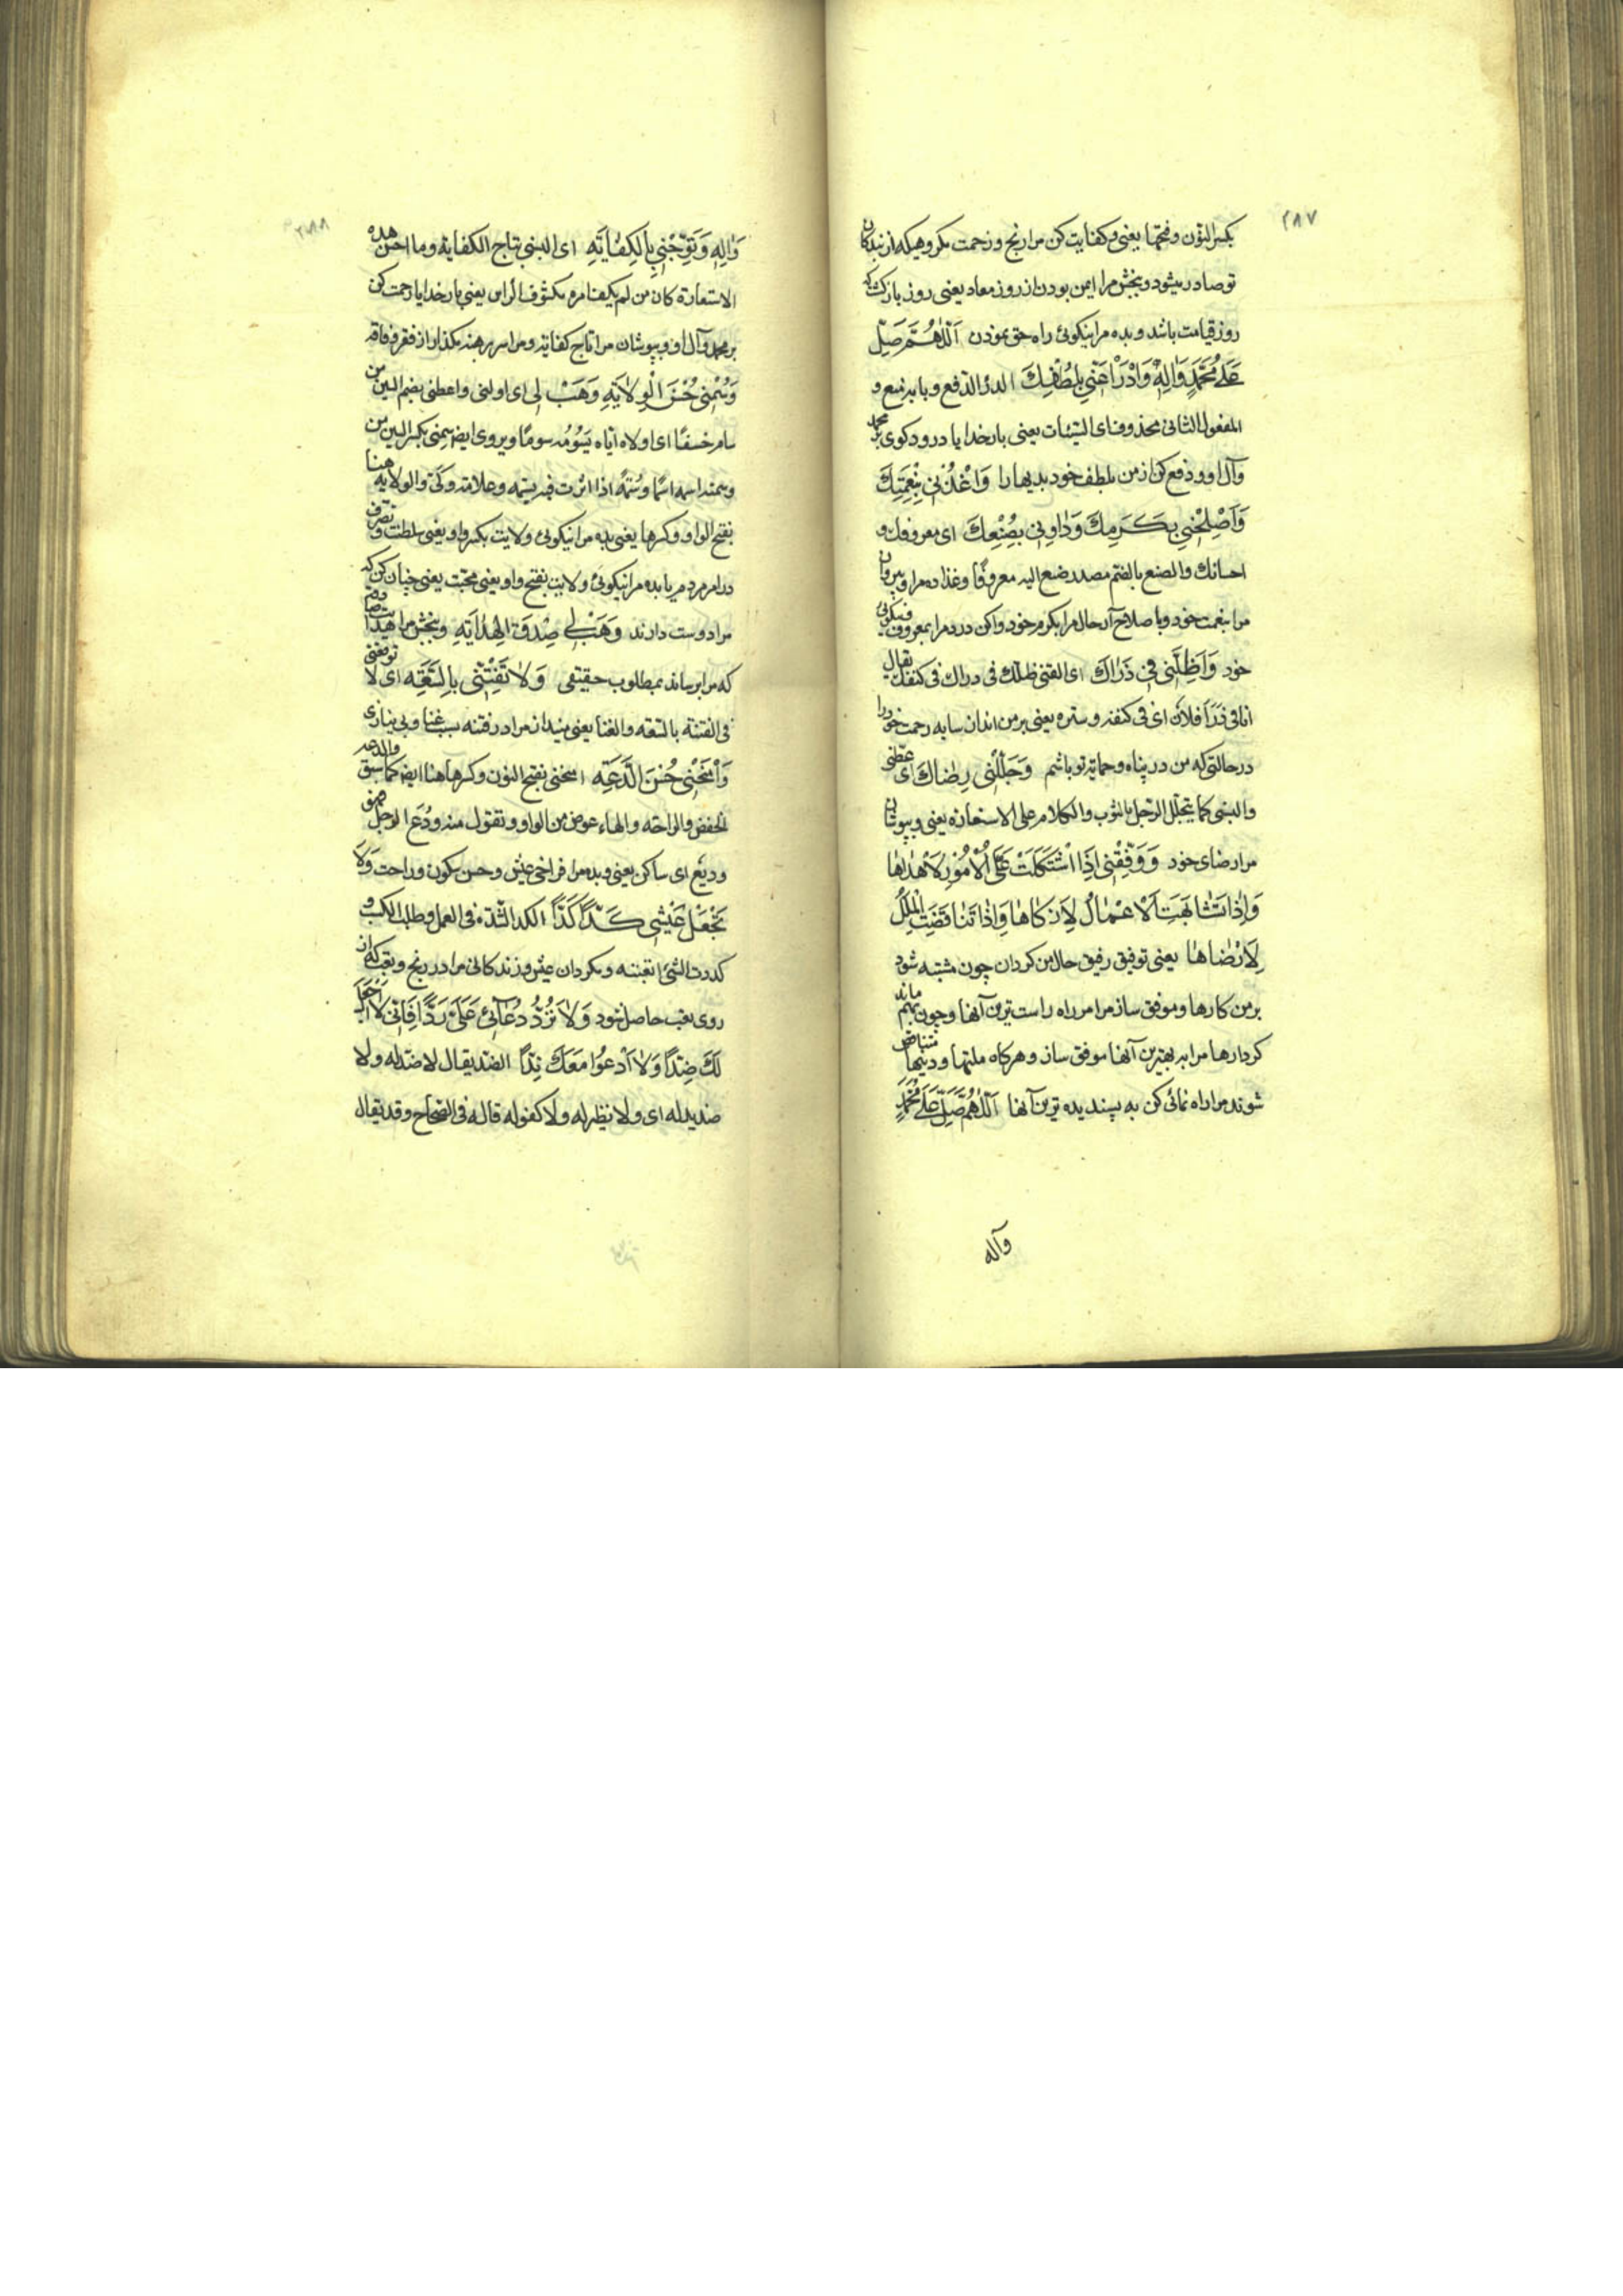 ۲۸۷
بكسر النون وفتحها يعنى وكفايت كن مرا رنج و زحمت مكروهيكه از بندكان
تو صادر ميشود و ببخش مرا ايمن بودن از روز معاد يعنى روز بازكشت كه
روز قيامت باشد و بده مرا نيكوئى راه حق نمودن اَللّٰهُمَّ صَلِّ
عَلٰى مُحَمَّدٍ وَاٰلِهِ وَادْرَأْ عَنّى بِلُطْفِكَ الدرأ الدفع وبابه منع و
المفعول الثانى محذوف اى السّيّئات يعنى بار خدايا درود كوى بر محمد
وآل او و دفع كن از من بلطف خود بديها را وَاغْذُنى بِنِعْمَتِكَ
وَاَصْلِحْنى بِكَرَمِكَ وَدٰاوِنى بِصُنْعِكَ اى معروفك و
احسانك والصنع بالضم مصدر صنع اليه معروفًا وغذا ده مرا و بپروران
مرا بنعمت خود و باصلاح آر حال مرا بكرم خود و دوا كن درد مرا بمعروف و نيكوئى
خود وَاَظِلَّنى فى ذَرٰاكَ اى القنى ظلك فى ذراك فى كنفك يقال
انا فى ذَرٰا فلان اى فى كنفه و ستره يعنى بر من انداز سايه رحمت خود را
در حالتى كه من در پناه و حمايه تو باشم وَجَلِّلْنى رِضٰاكَ اى غطّنى
والبسنى كما يتجلّل الرّجل بالثوب والكلام على الاستعارة يعنى و بپوشان
مرا رضاى خود وَوَفِّقْنى اِذَا اشْتَكَلَتْ عَلَىَّ الْاُمُورُ لِاَهْدٰاهٰا
وَاِذٰا تَشٰابَهَتِ الْاَعْمٰالُ لِاَزْكٰاهٰا وَاِذٰا تَنٰاقَضَتِ الْمِلَلُ
لِاَرْضٰاهٰا يعنى توفيق رفيق حال من كردان چون مشتبه شود
بر من كارها و موفق ساز مرا مر راه راست ترين آنها و چون بهم ماند
كردارها مرا به بهترين آنها موفق ساز و هركاه ملتها و دينها متناقض
شوند مرا راه نمائى كن به پسنديده ترين آنها اَللّٰهُمَّ صَلِّ عَلٰى مُحَمَّدٍ
وآله
۲۸۸
وَاٰلِهِ وَتَوِّجْنى بِالْكِفٰايَةِ اى البسنى بتاج الكفاية وما احسن هذه
الاستعارة كان من لم يكف امره مكشوف الرأس يعنى بار خدايا رحمت كن
بر محمد وآل او و بپوشان مرا تاج كفايه و مرا سر برهنه مكذار از فقر و فاقه
وَسُمْنى حُسْنَ الْوِلاٰيَةِ وَهَبْ لى اى اولنى واعطنى بضم السين من
سامه خسفًا اى اولاه اياه يسومه سومًا ويروى ايضا سِمنى بكسر السين من
وسمه اذا اثرت فيه بسمه وعلامة وكىّ والولاية هنا
بفتح الواو وكسرها يعنى بده مرا نيكوئى ولايت بكسر واو يعنى سلطنت و تصرف
در امر مردم يا بده مرا نيكوئى ولايت بفتح واو يعنى محبت يعنى چنان كن كه مردم
مرا دوست دارند وَهَبْ لى صِدْقَ الْهِدٰايَةِ و ببخش مرا
كه مرا برساند بمطلوب حقيقى وَلاٰ تَفْتِنّى بِالسَّعَةِ اى لا توقعنى
فى الفتنة بالسّعة والغنا يعنى مينداز مرا در فتنه بسبب غنا و بى نيازى
وَامْنَحْنى حُسْنَ الدَّعَةِ امنحنى بفتح النون وكسرها هنا ايضا كما سبق والدعه
الخفض والراحة والهاء عوض من الواو وتقول منه ودُع الرجل فهو
وديع اى ساكن يعنى و بده مرا فراخى عيش و حسن سكون و راحت وَلاٰ
تَجْعَلْ عَيْشى كَدًّا كَدًّا الكد الشّدّة فى العمل وطلب الكسب و
كددت الشئ اتعبته و مكردان عيش و زندكانى مرا در رنج و تعب كه از
روى تعب حاصل شود وَلاٰ تَرُدَّ دُعٰائى عَلَىَّ رَدًّا فَاِنّى لاٰ اَجْعَلُ
لَكَ ضِدًّا وَلاٰ اَدْعُو مَعَكَ نِدًّا الضد يقال لا ضدّ له ولا
ضديد له اى ولا نظير له ولا كفو له قاله فى الصحاح وقد يقال